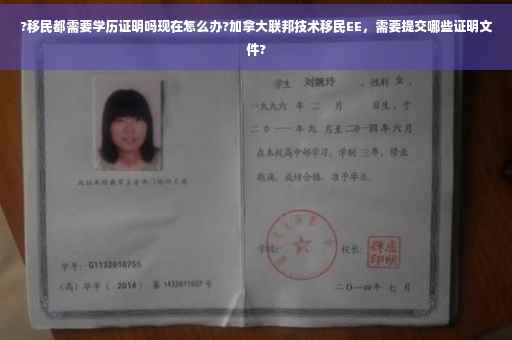 ?移民都需要学历证明吗现在怎么办?加拿大联邦技术移民EE，需要提交哪些证明文
件?
学生 刘婉玲 ，性别 女 ，
一九九六 年 二 月 日生，于
二〇一一年九 月至二〇一四年六月
在本校高中部学习，学制 三年，修业
期满，成绩合格，准予毕业。
学号: G1132010755
(高) 毕字 ( 2014 ) 第 1432011027 号
学校:
校长:
二〇一四年 七 月